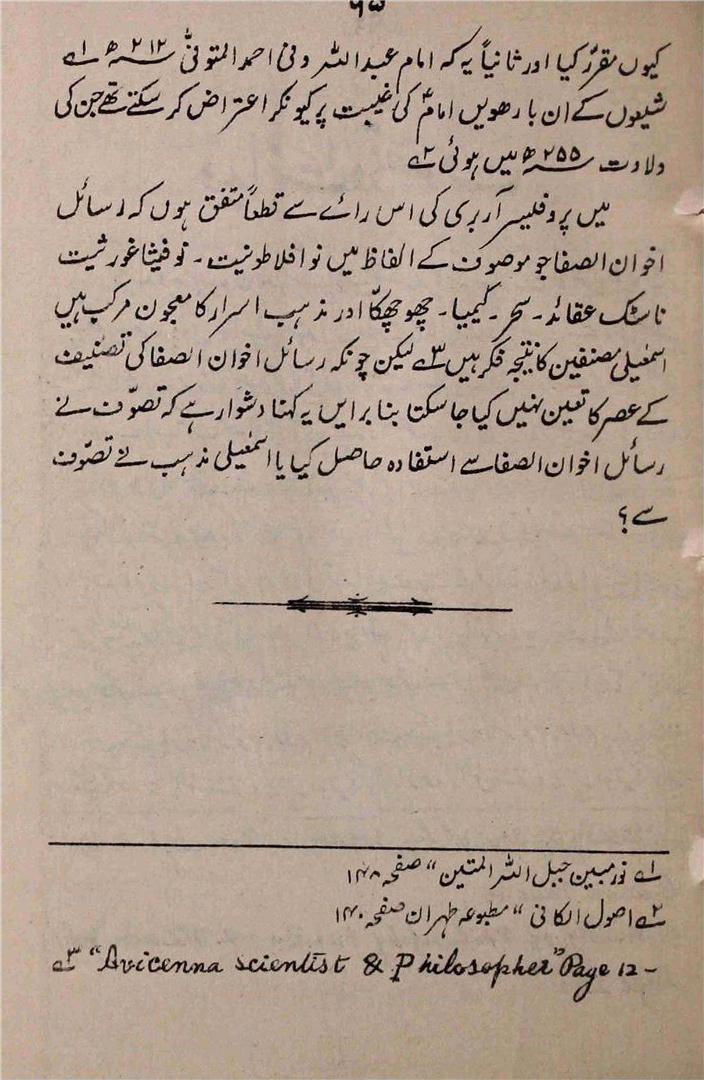 کیوں مقرّر کیا اور ثانیاً یہ کہ امام عبداللہ وفی احمد المتوفیٰ ۲۱۲ھ ۱ے
شیعوں کے ان بارھویں امامؑ کی غیبت پر کیونکر اعتراض کر سکتے تھے جن کی
ولادت ۲۵۵ھ میں ہوئی ۲ے
میں پروفلیسر آربری کی اس رائے سے قطعاً متفق ہوں کہ رسائل
اخوان الصفا جو موصوف کے الفاظ میں نوافلاطونیت۔ نوفیثاغورثیت
ناسٹک عقائد۔ سحر۔ کیمیا۔ چھوچھکّا اور مذہب اسرار کا معجون مرکب ہیں
اسمٰعیلی مصنفین کا نتیجہ فکر ہیں ۳ے لیکن چونکہ رسائل اخوان الصفا کی تصنیف
کے عصر کا تعین نہیں کیا جا سکتا بنا برایں یہ کہنا دشوار ہے کہ تصوّف نے
رسائل اخوان الصفا سے استفادہ حاصل کیا یا اسمٰعیلی مذہب نے تصوّف
سے؟
۱ے نورمبین حبل اللہ المتین" صفحہ ۱۴۸
۲ے اصول الکافی" مطبوعہ طہران صفحہ ۱۴۰
۳ے "Avicenna scientist & Philosopher" Page 12 -